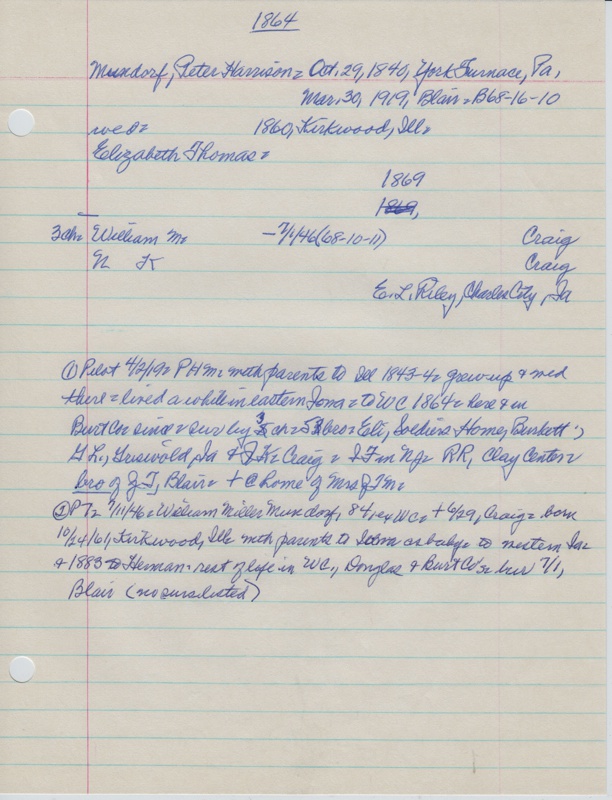 1864
Mundorf, Peter Harrison = Oct. 29, 1840, York Furnace, Pa,
Mar. 30, 1919, Blair = B68-16-10
wed = 1860, Kirkwood, Ill =
Elizabeth Thomas =
1869
1869,
3 ch = William M = - 7/1/46 (68-10-11) Craig
N K Craig
E. L. Riley, Charles City, Ia
① Pilot 4/2/19 = PHM = w parents to Ill 1843-4 = grew up & wed
there = lived a while in eastern Iowa = to WC 1864 = here & in
Burt Co since = sur by 3 ch = 5 bro = Eli, Soldiers Home, Burkett;
G. L., Griswold, Ia & J K = Craig = J F in Ng = RR, Clay Center =
bro of J T, Blair = + C home of Mrs J M =
② PT = 7/11/46 = William Miller Mundorf, 84, ex WC = + 6/29, Craig = born
10/24/61, Kirkwood, Ill = w parents to Iowa as baby = to western Ia =
& 1883 to Herman = rest of life in WC, Douglas & Burt Co = bur 7/1,
Blair (no surs listed)